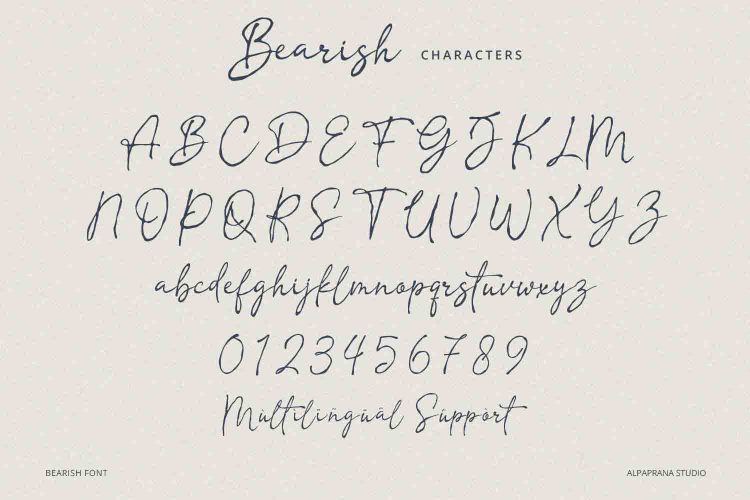 Bearish CHARACTERS
ABCDEFGJKLM
NOPQRSTUVWXYZ
abcdefghijklmnopqrstuvwxyz
0123456789
Mùltilïngüäl Süppòrt
BEARISH FONT
ALPAPRANA STUDIO